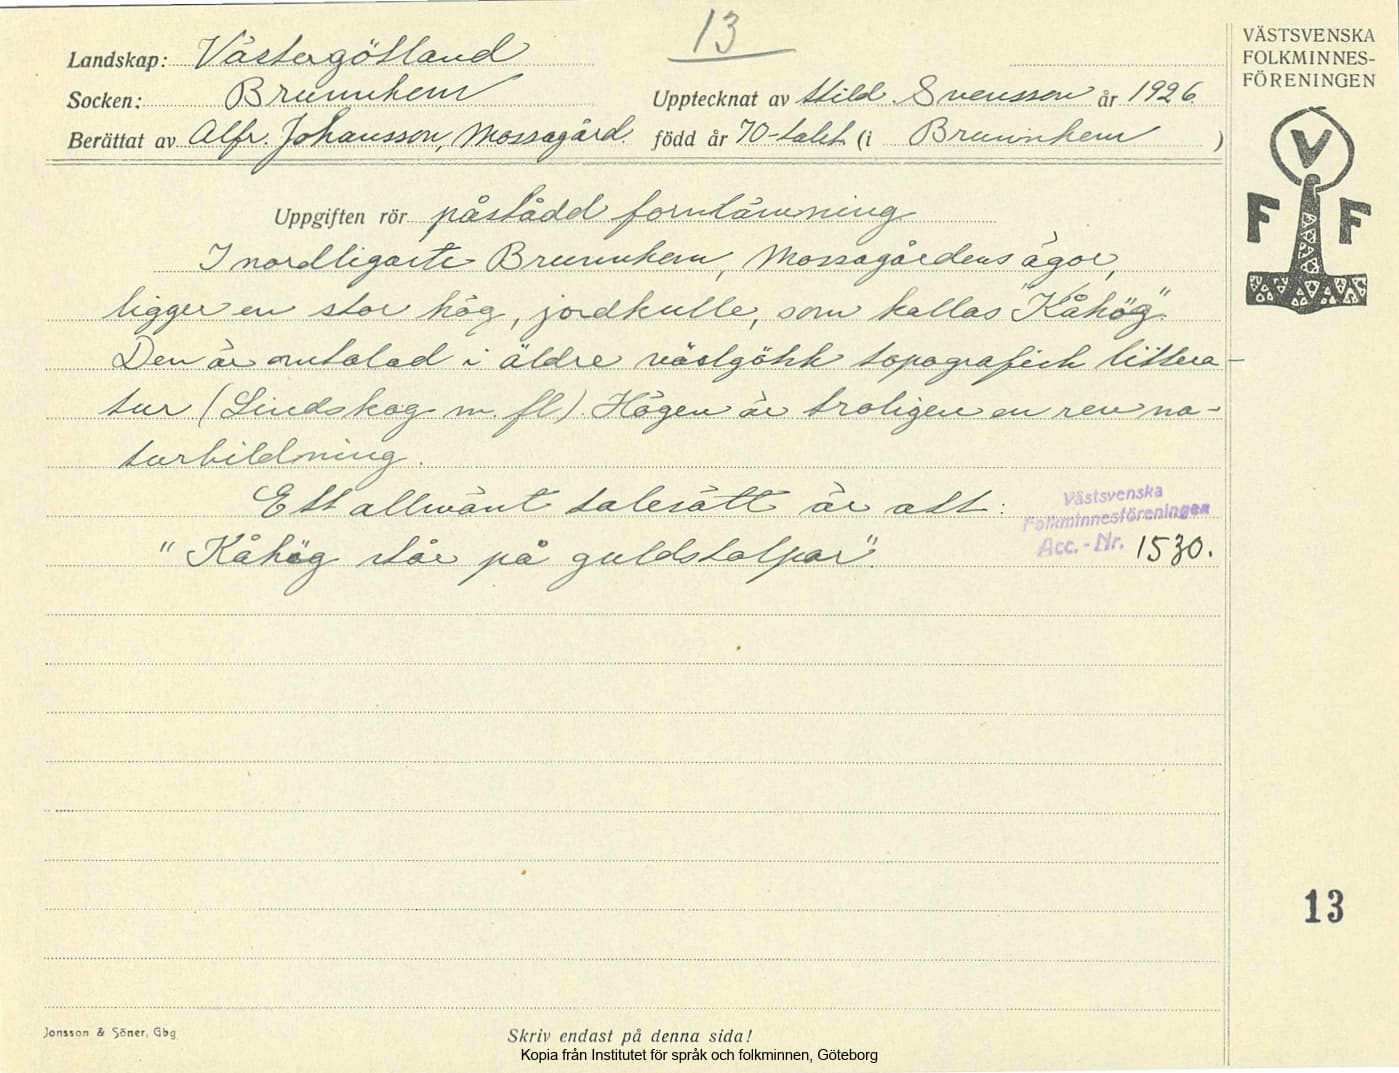 13
Landskap: Västergötland
Socken: Brunnhem
Upptecknat av Hild. Svensson år 1926.
Berättat av Alfr. Johansson, Mossagård. född år 70-talet (i Brunnhem )
Uppgiften rör påstådd fornlämning
I nordligaste Brunnhem, Mossagårdens ägor,
ligger en stor hög, jordkulle, som kallas "Kåhög".
Den är omtalad i äldre västgötsk topografisk littera-
tur (Lindskog m. fl). Högen är troligen en ren na-
turbildning.
Ett allmänt talesätt är att:
"Kåhög står på guldstolpar".
Västsvenska
Folkminnesföreningen
Acc.-Nr. 1530.
VÄSTSVENSKA
FOLKMINNES-
FÖRENINGEN
V
F F
13
Jonsson & Söner, Gbg
Skriv endast på denna sida!
Kopia från Institutet för språk och folkminnen, Göteborg